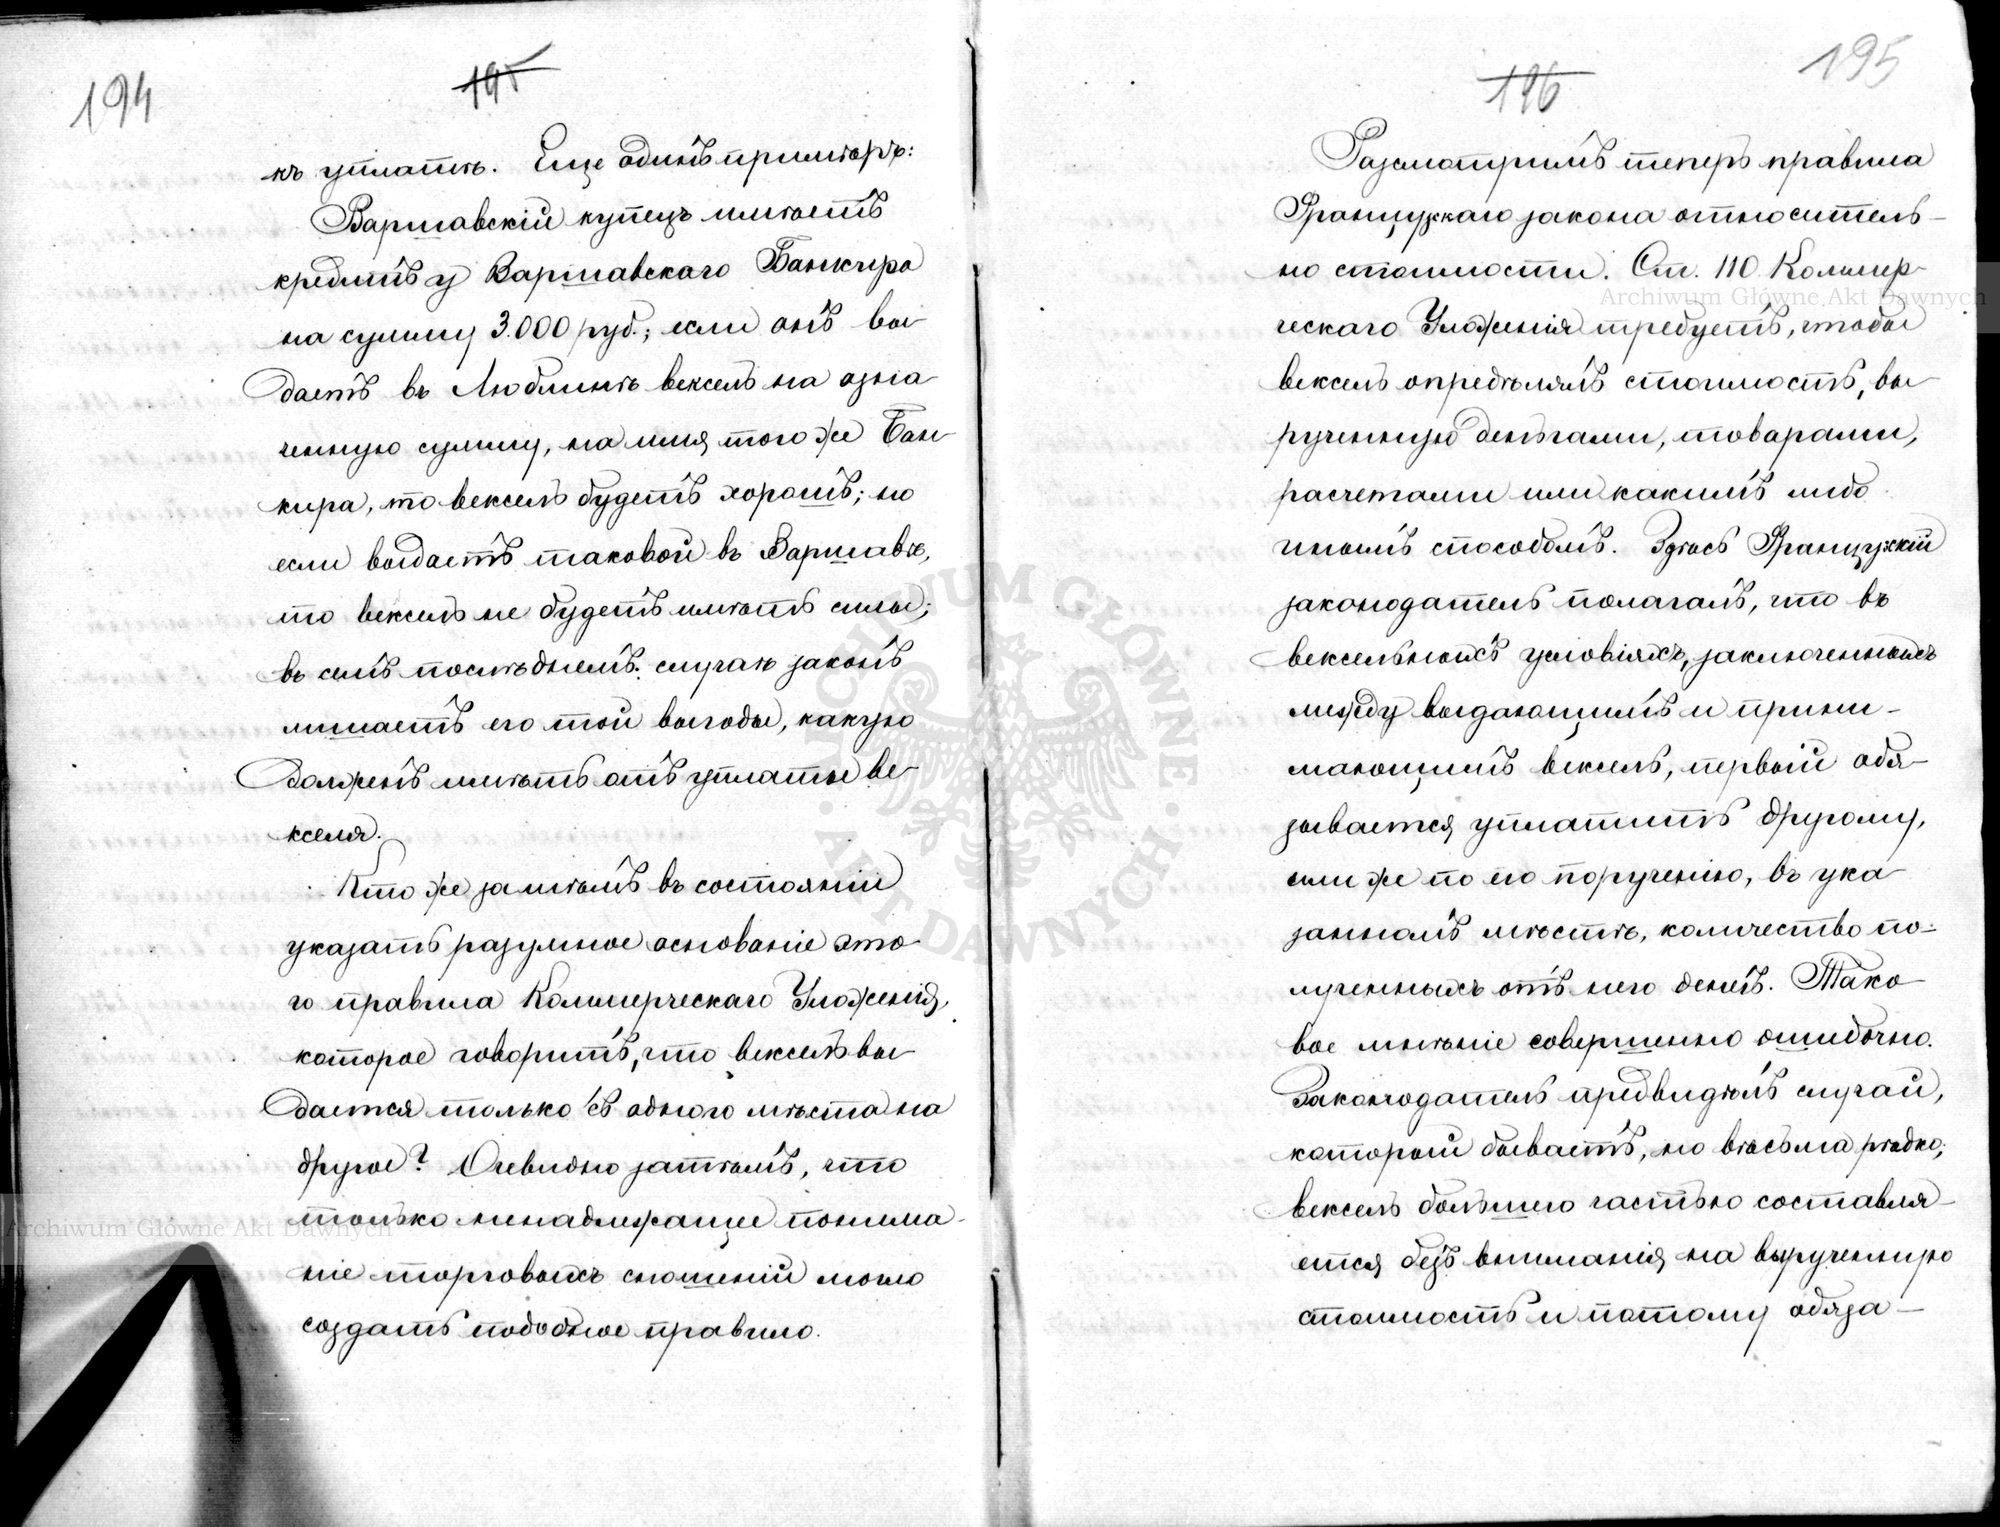 194
195
къ уплатѣ. Еще одинъ примѣръ:
Варшавскій купецъ имѣетъ
кредитъ у Варшавскаго Банкира
на сумму 3.000 руб.; если онъ вы
дастъ въ Люблинѣ вексель на озна
ченную сумму, на имя того же Бан
кира, то вексель будетъ хорошъ; но
если выдастъ таковой въ Варшавѣ,
то вексель не будетъ имѣть силы;
въ семъ послѣднемъ случаѣ законъ
лишаетъ его той выгоды, какую
долженъ имѣть отъ уплаты ве
кселя.
Кто же затѣмъ въ состояніи
указать разумное основаніе это
го правила Коммерческаго Уложенія,
которое говоритъ, что вексель вы
дается только съ одного мѣста на
другое? Очевидно затѣмъ, что
только ненадлежащее понима-
ніе торговыхъ сношеній могло
создать подобное правило.
195
196
Разсмотримъ теперь правила
Французскаго закона относитель-
но стоимости. Ст. 110 Коммер-
ческаго Уложенія требуетъ, чтобы
вексель опредѣлялъ стоимость, вы-
рученную деньгами, товарами,
расчетами или какимъ либо
инымъ способомъ. Здѣсь Французскій
законодатель полагалъ, что въ
вексельныхъ условіяхъ, заключенныхъ
между выдающимъ и прини-
мающимъ вексель, первый обя-
зывается уплатить другому,
или же по его порученію, въ ука
занномъ мѣстѣ, количество по-
лученныхъ отъ него денегъ. Тако
вое мнѣніе совершенно ошибочно.
Законодатель предвидѣлъ случай,
который бываетъ, но весьма рѣдко;
вексель большею частью составля-
ется безъ вниманія на вырученную
стоимость и потому обяза-
Archiwum Główne Akt Dawnych
Archiwum Główne Akt Dawnych
ARCHIWUM GŁÓWNE · AKT DAWNYCH ·